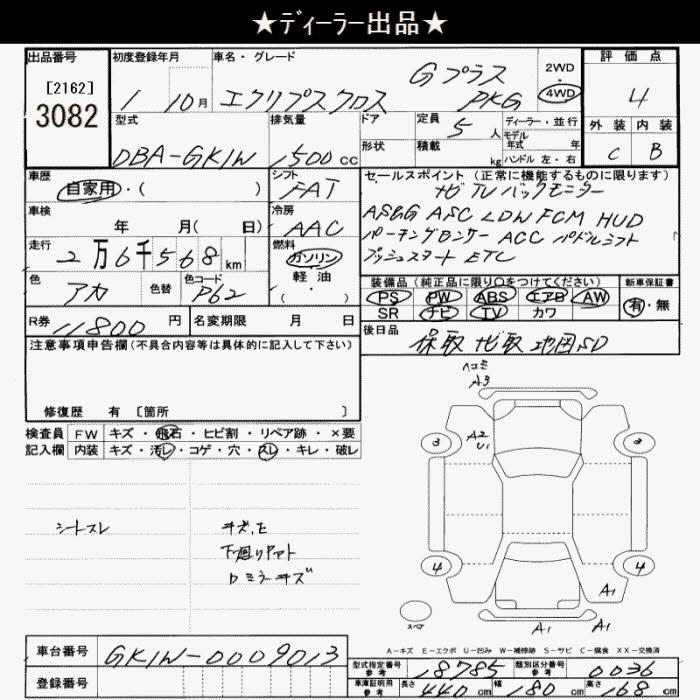 ★ディーラー出品★
出品番号
[2162]
3082
初度登録年月
1 10月
車名・グレード
エクリプスクロス
Gプラス
PKG
2WD
・
4WD
評価点
4
外装 内装
C B
型式
DBA-GK1W
排気量
1500cc
ドア
形状
定員
5人
積載
kg
ディーラー・並行
モデル
年式 年
ハンドル 左・右
車歴
自家用・( )
シフト
FAT
車検
年 月( 日)
冷房
AAC
走行
2万6千568km
燃料
ガソリン
軽油
( ・ )
色
アカ
色替
色コード
P62
R券
11800円
名変期限 月 日
セールスポイント (正常に機能するものに限ります)
ナビTVバックモニター
ASBG ASC LDW FCM HUD
パーキングセンサー ACC パドルシフト
プッシュスタート ETC
装備品(純正品に限り○をつけてください)
PS PW ABS エアB AW
SR ナビ TV カワ
新車保証書
有・無
後日品
保取 ナビ取 地図SD
注意事項申告欄(不具合内容等は具体的に記入して下さい)
修復歴 有 [箇所 ]
検査員
記入欄
FW キズ・飛石・ヒビ割・リペア跡・×要
内装 キズ・汚レ・コゲ・穴・スレ・キレ・破レ
シートスレ
キズ、E
下廻りヤマト
ロミラーキズ
ヘコミ
A3
A2
U1
3 3
4 4
A1
A1 A1
スペア
A-キズ E-エクボ U-凹み W-補修跡 S-サビ C-腐食 XX-交換済
車台番号
GK1W-0009013
登録番号
型式指定番号
参考
18785
類別区分番号
参考
0036
車庫証明用
参考
長さ 440cm
幅 180cm
高さ 168cm